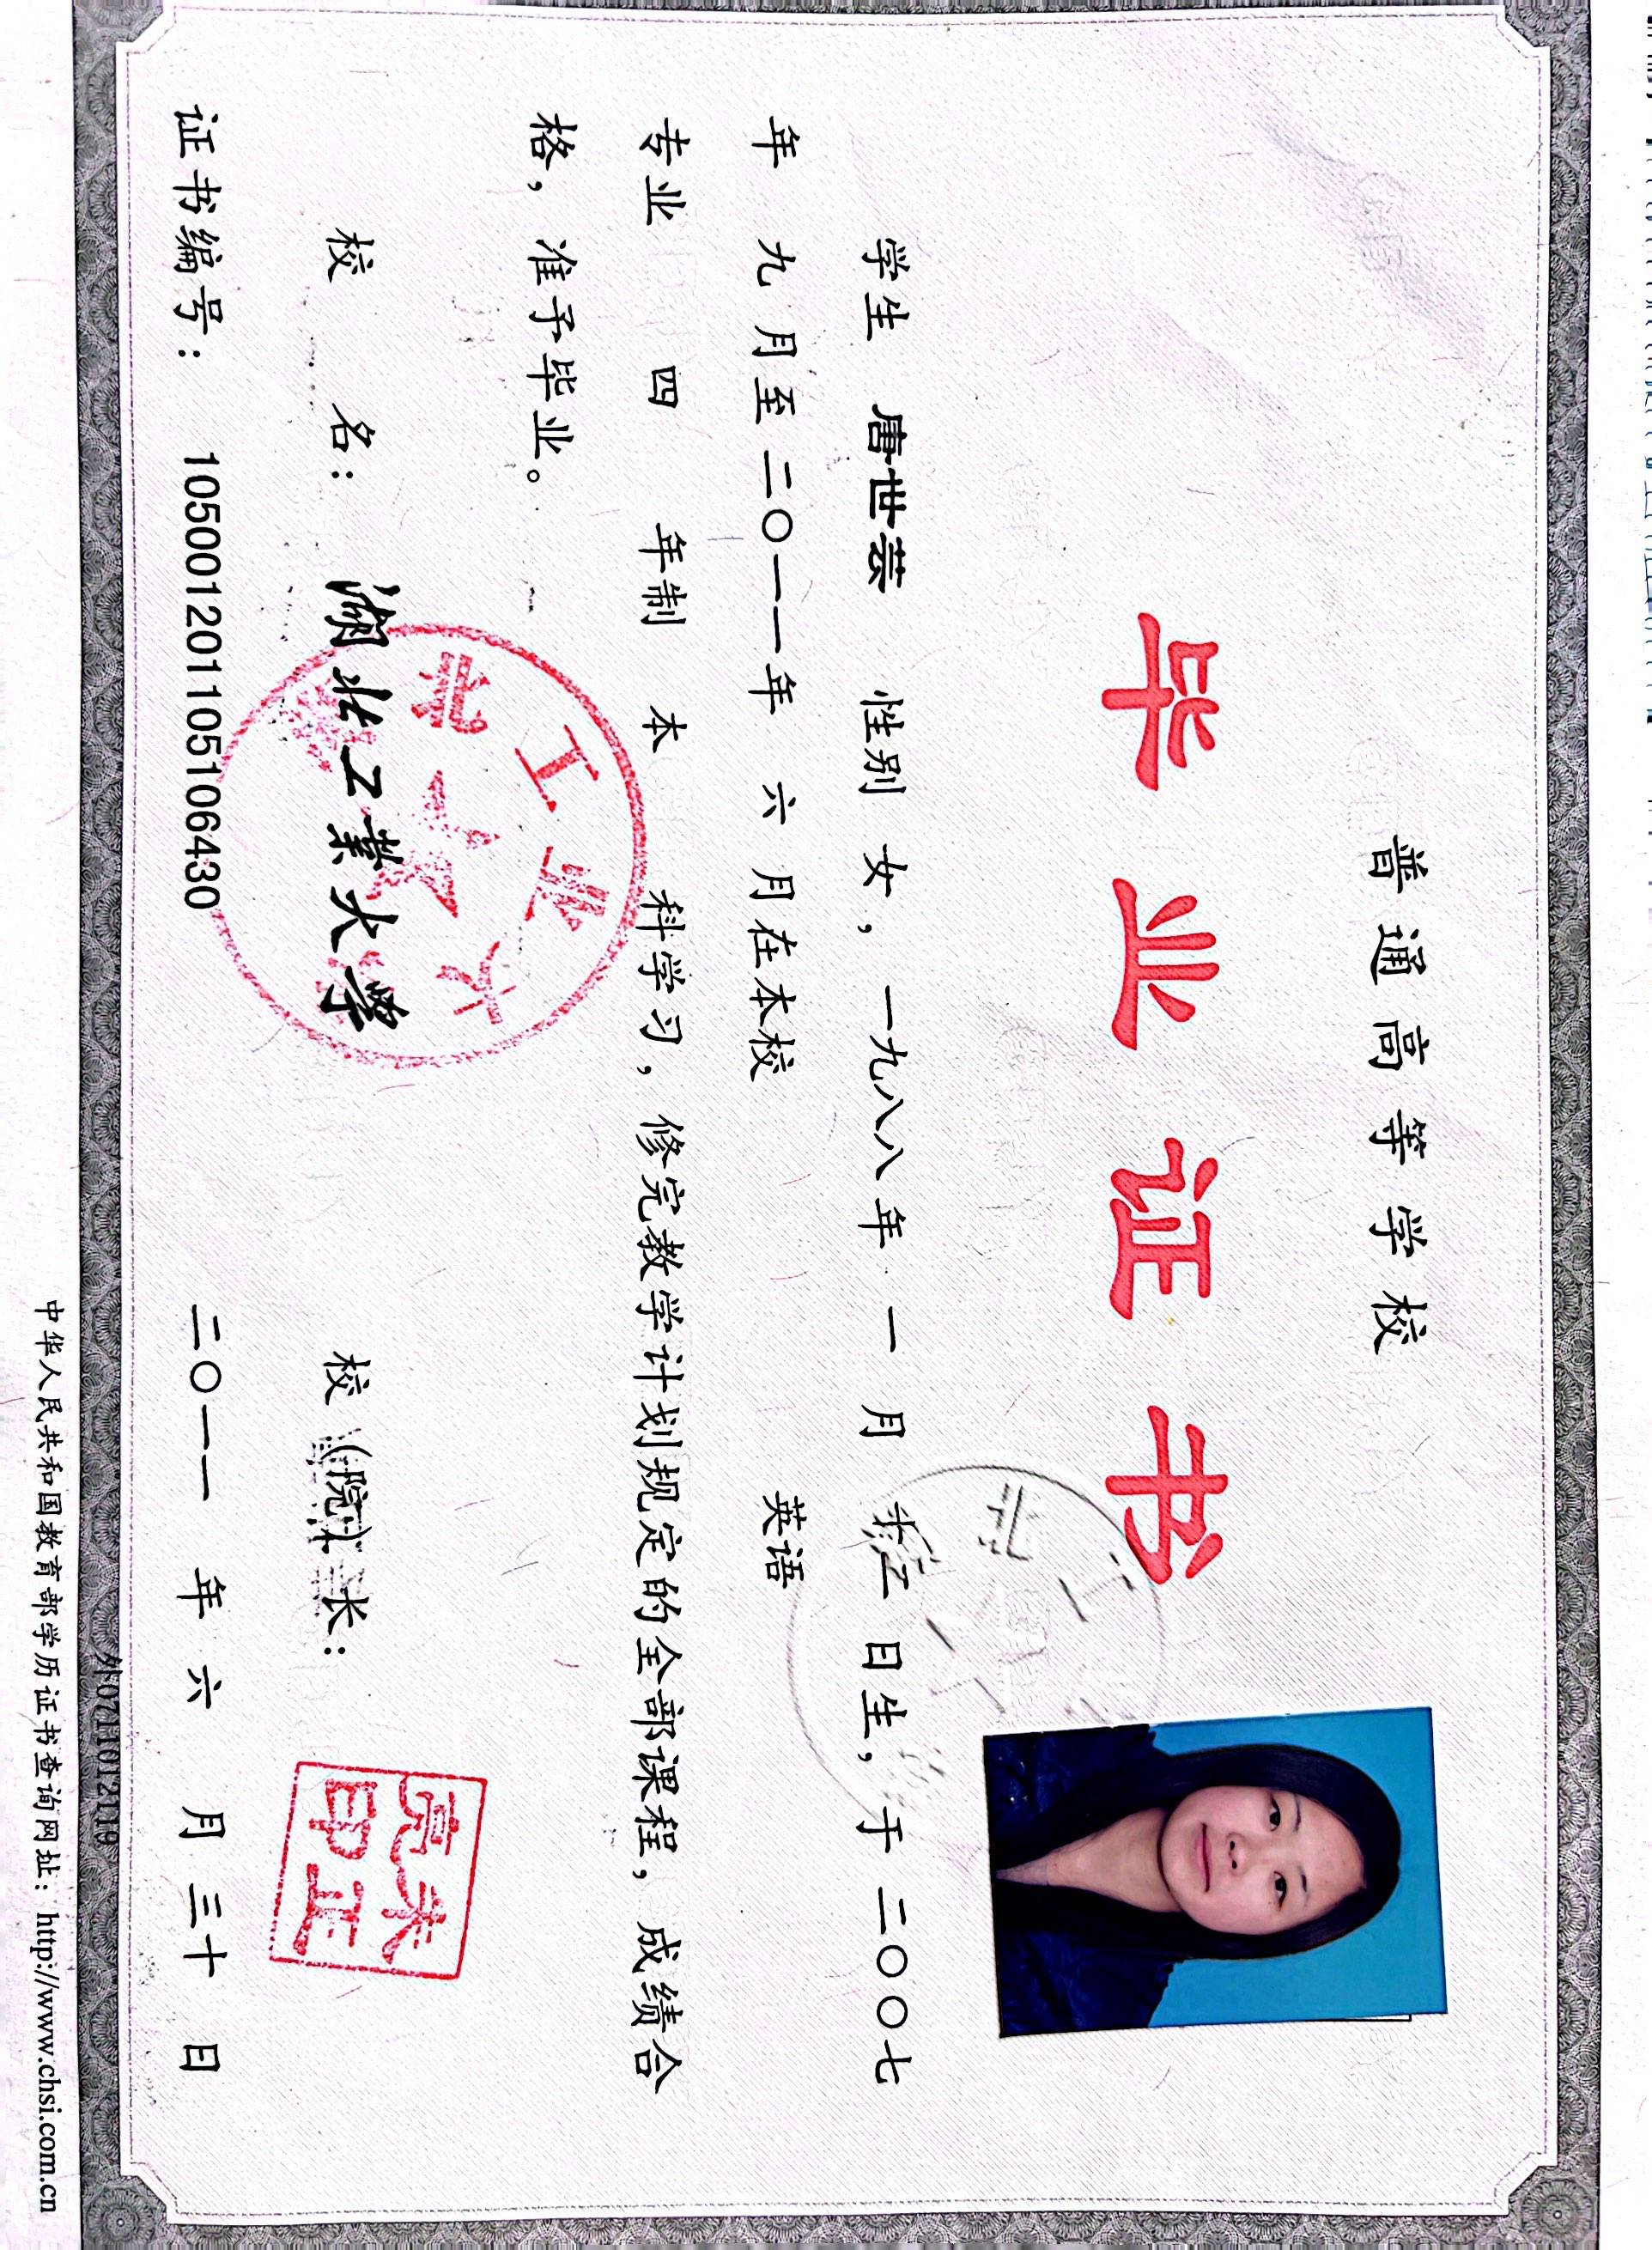 普通高等学校
毕业证书
学生 唐世芸 性别 女，一九八八年 一 月 廿二 日生，于二〇〇七
年 九 月至二〇一一年 六 月在本校 英语
专业 四 年制 本 科学习，修完教学计划规定的全部课程，成绩合
格，准予毕业。
校 名：湖北工业大学
校（院）长：
证书编号：105001201105106430
二〇一一 年 六 月 三十 日
外0711012119
中华人民共和国教育部学历证书查询网址：http://www.chsi.com.cn